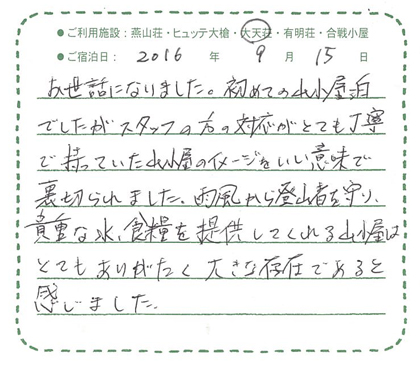 ●ご利用施設：燕山荘・ヒュッテ大槍・大天荘・有明荘・合戦小屋
●ご宿泊日： 2016 年 9 月 15 日
お世話になりました。初めての山小屋泊
でしたがスタッフの方の対応がとても丁寧
で持っていた山小屋のイメージをいい意味で
裏切られました。雨風から登山者を守り、
貴重な水、食糧を提供してくれる山小屋は
とてもありがたく大きな存在であると
感じました。